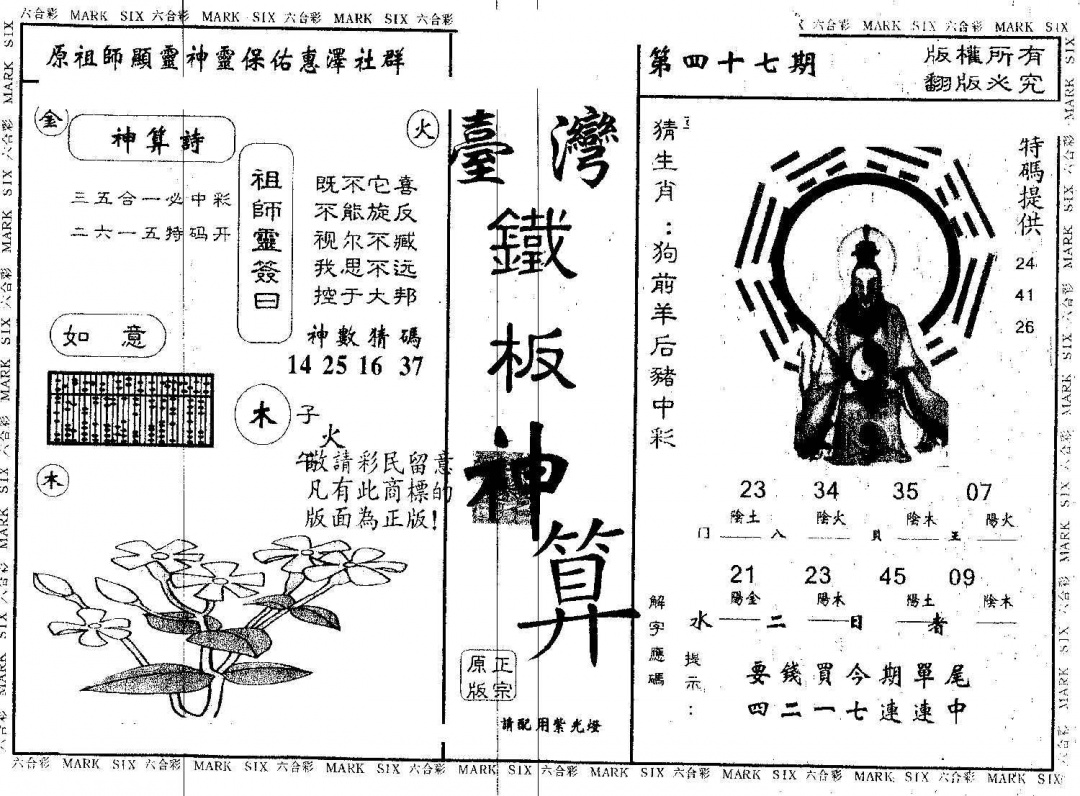 六合彩 MARK SIX 六合彩 MARK SIX 六合彩 MARK SIX 六合彩
六合彩 MARK SIX 六合彩 MARK SIX
原祖師顯靈神靈保佑惠澤社群
第四十七期
版權所有
翻版必究
金
神算詩
火
三五合一必中彩
二六一五特码开
祖師靈簽曰
既不它喜
不能旋反
视尔不臧
我思不远
控于大邦
神數猜碼
14 25 16 37
如意
木
子
火
午
敬請彩民留意
凡有此商標的
版面為正版!
木
臺灣
鐵板神算
正宗
原版
請配用紫光燈
猜生肖:狗前羊后豬中彩
特碼提供
24
41
26
23 34 35 07
陰土 陰火 陰木 陽火
门 入 貝 王
21 23 45 09
陽金 陽木 陽土 陰木
水 二 日 者
解字應碼
提示:
要錢買今期單尾
四二一七連連中
六合彩 MARK SIX 六合彩 MARK SIX 六合彩 MARK SIX 六合彩 MARK SIX 六合彩 MARK SIX 六合彩 MARK SIX 六合彩 MARK SIX 六合彩 MARK SIX